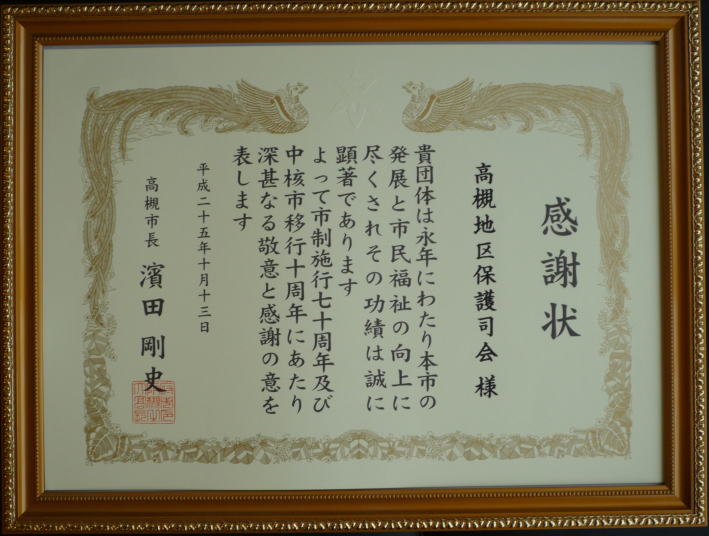 感謝状
高槻地区保護司会 様
貴団体は永年にわたり本市の
発展と市民福祉の向上に
尽くされその功績は誠に
顕著であります
よって市制施行七十周年及び
中核市移行十周年にあたり
深甚なる敬意と感謝の意を
表します
平成二十五年十月十三日
高槻市長 濱田 剛史